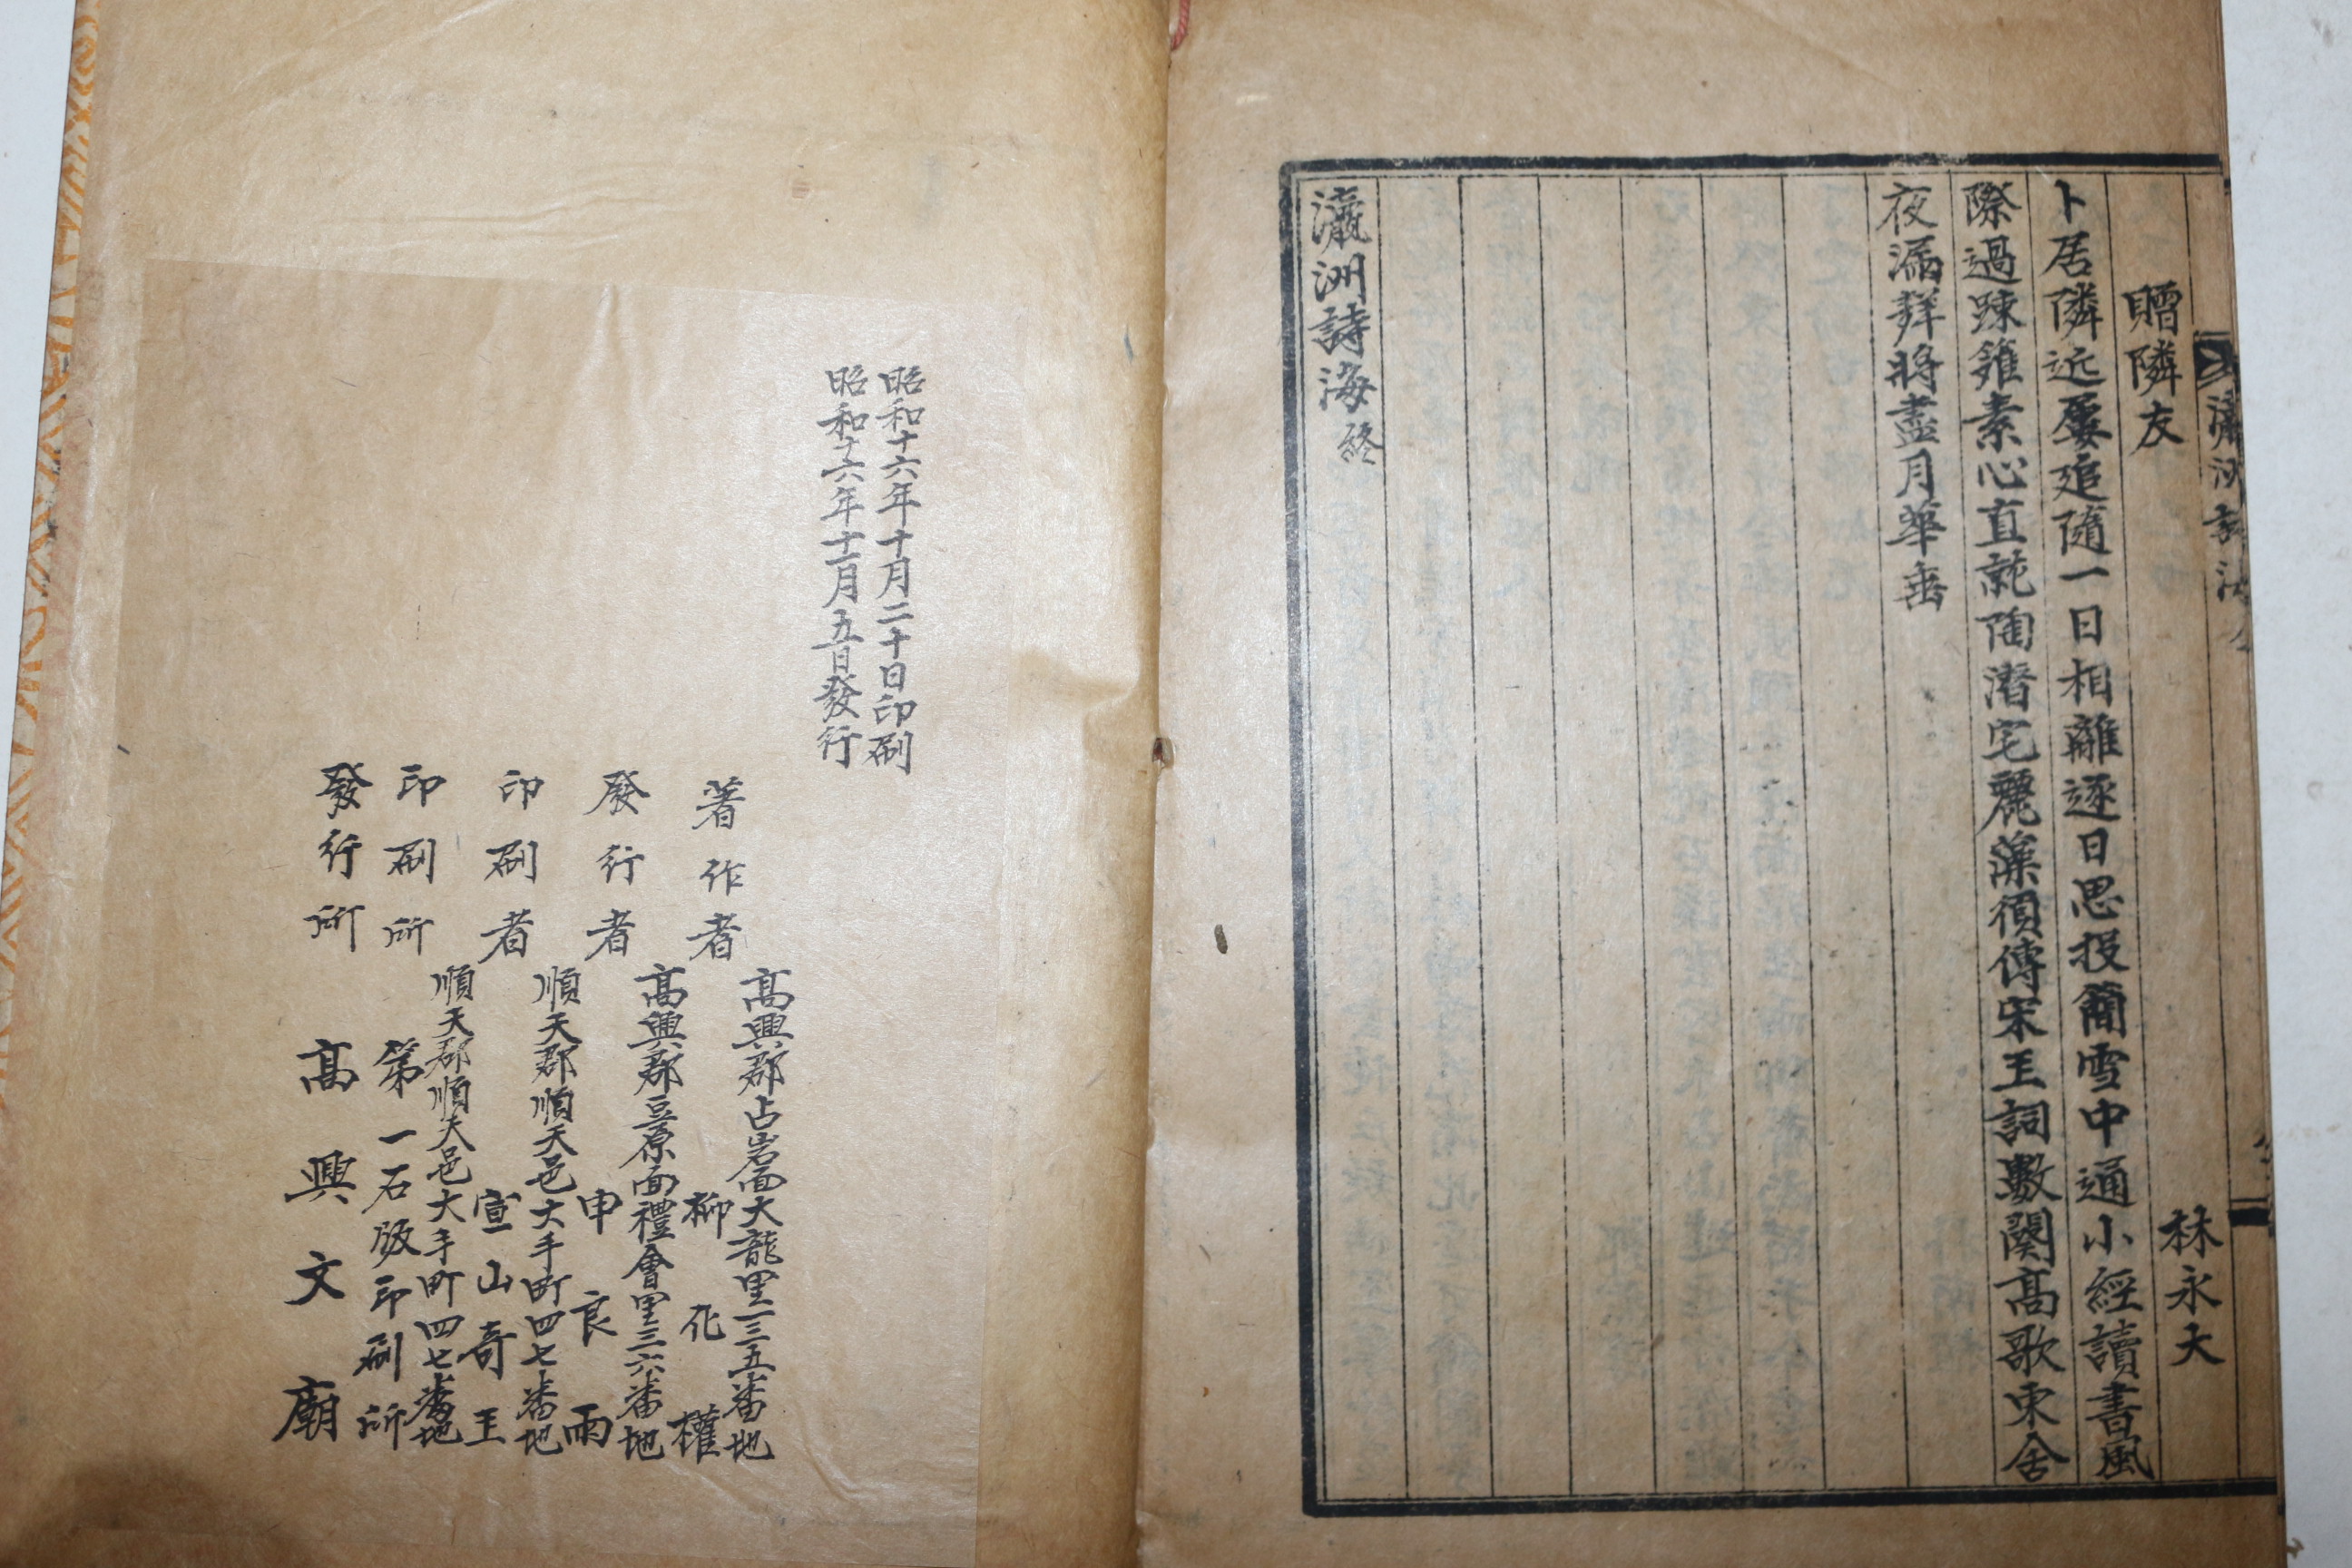 贈隣友
林永大
卜居隣近屢追隨一日相離逐日思投簡雪中通小經讀書風
際過踈籬素心直就陶潛宅麗藻須傳宋玉詞數闋高歌東舍
夜漏聲將盡月華垂
瀛洲詩海終
昭和十六年十月二十日印刷
昭和十六年十一月五日發行
著作者
高興郡占岩面大龍里一三五番地
柳化權
發行者
高興郡豆原面禮會里三六番地
申良雨
印刷者
順天郡順天邑大手町四七番地
宣山奇玉
印刷所
順天郡順天邑大手町四七番地
第一石版印刷所
發行所
高興文廟